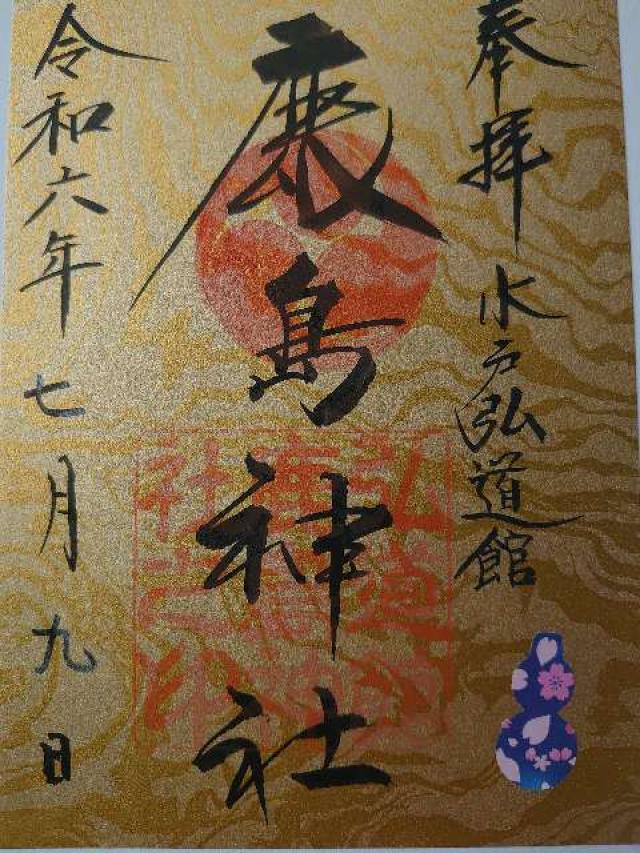 奉拝 水戸弘道館
鹿島神社
令和六年七月九日
弘道館
鹿島神
社之印